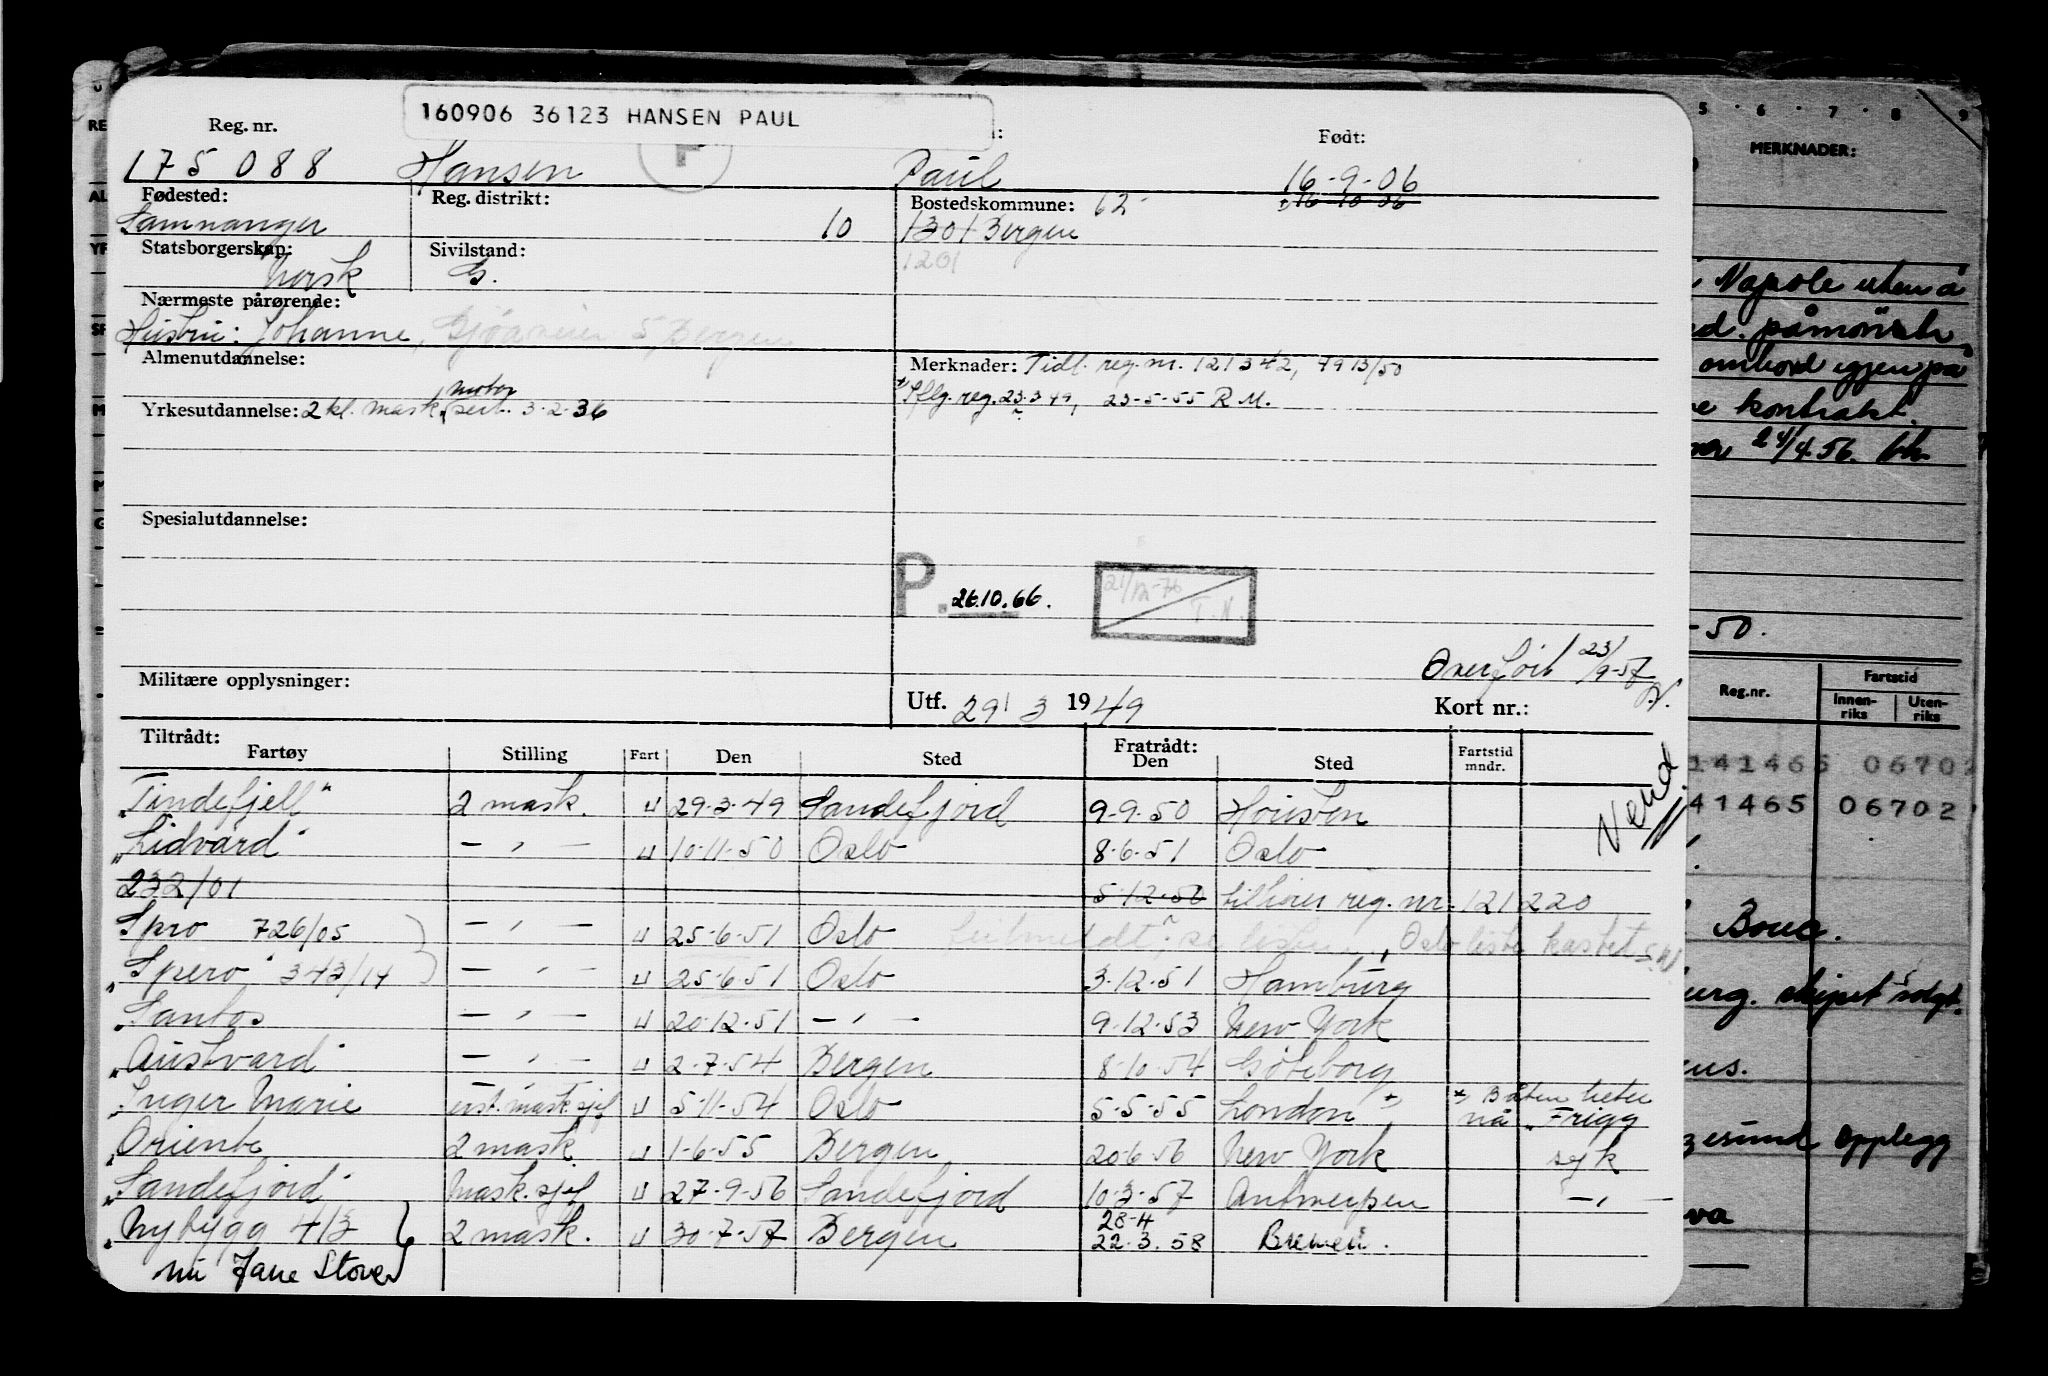 160906 36123 HANSEN PAUL
Reg. nr. Født:
175 088 Hansen Paul 16-9-06
Fødested: Reg. distrikt: Bostedskommune: 62- 16-10-06
Samnanger 10 1301 Bergen
Statsborgerskap: Sivilstand: 1201
Norsk G.
Nærmeste pårørende:
Hustru: Johanne, 5, Bergen
Almenutdannelse: Merknader: Tidl. reg. nr. 121342, 7913/50
motor
Yrkesutdannelse: 2 kl. mask. sert. 3-2-36 Iflg. reg. 23-3-49, 23-5-55 R.M.
Spesialutdannelse:
P. 26.10.66. 21/12-76 T.N.
Overført 23/9-57
Militære opplysninger: Utf. 29/3 1949 Kort nr.:
Tiltrådt: Fratrådt:
Fartøy Stilling Fart Den Sted Den Sted Fartstid mndr.
"Tindefjell" 2 mask. u 29-3-49 Sandefjord 9-9-50 Houston Vend
"Lidvard" — " — u 10-11-50 Oslo 8-6-51 Oslo
232/01 5-12-50 tilhører reg. nr. 121220
Spro 726/05 — " — u 25-6-51 Oslo feilmeldt, se listen, Oslo liste kastet
"Spero" 343/14 — " — u 25-6-51 Oslo 3-12-51 Hamburg
"Santos — " — u 20-12-51 — " — 9-12-53 New York
"Austvard" — " — u 2-7-54 Bergen 8-10-54 Göteborg
"Inger Marie mask. sjef u 5-11-54 Oslo 5-5-55 London *) *) Båten heter nå "Frigg
"Oriente 2 mask u 1-6-55 Bergen 20-6-56 New York syk
"Sandefjord" Mask. sjef u 27-9-56 Sandefjord 10-3-57 Antwerpen — " —
28-4
"Nybygg 413 2 mask. u 30-7-57 Bergen 22.3.58 Bremen.
nu Jane Stove
5 · 6 · 7 · 8 · 9
MERKNADER:
i Napoli uten å
påmønstr.
ombord igjen på
kontrakt.
24/4.56.
-50.
Reg.nr. Fartstid
Innenriks Utenriks
141465 06702
41465 06702
Bouc.
urg. skipet solgt.
opplegg